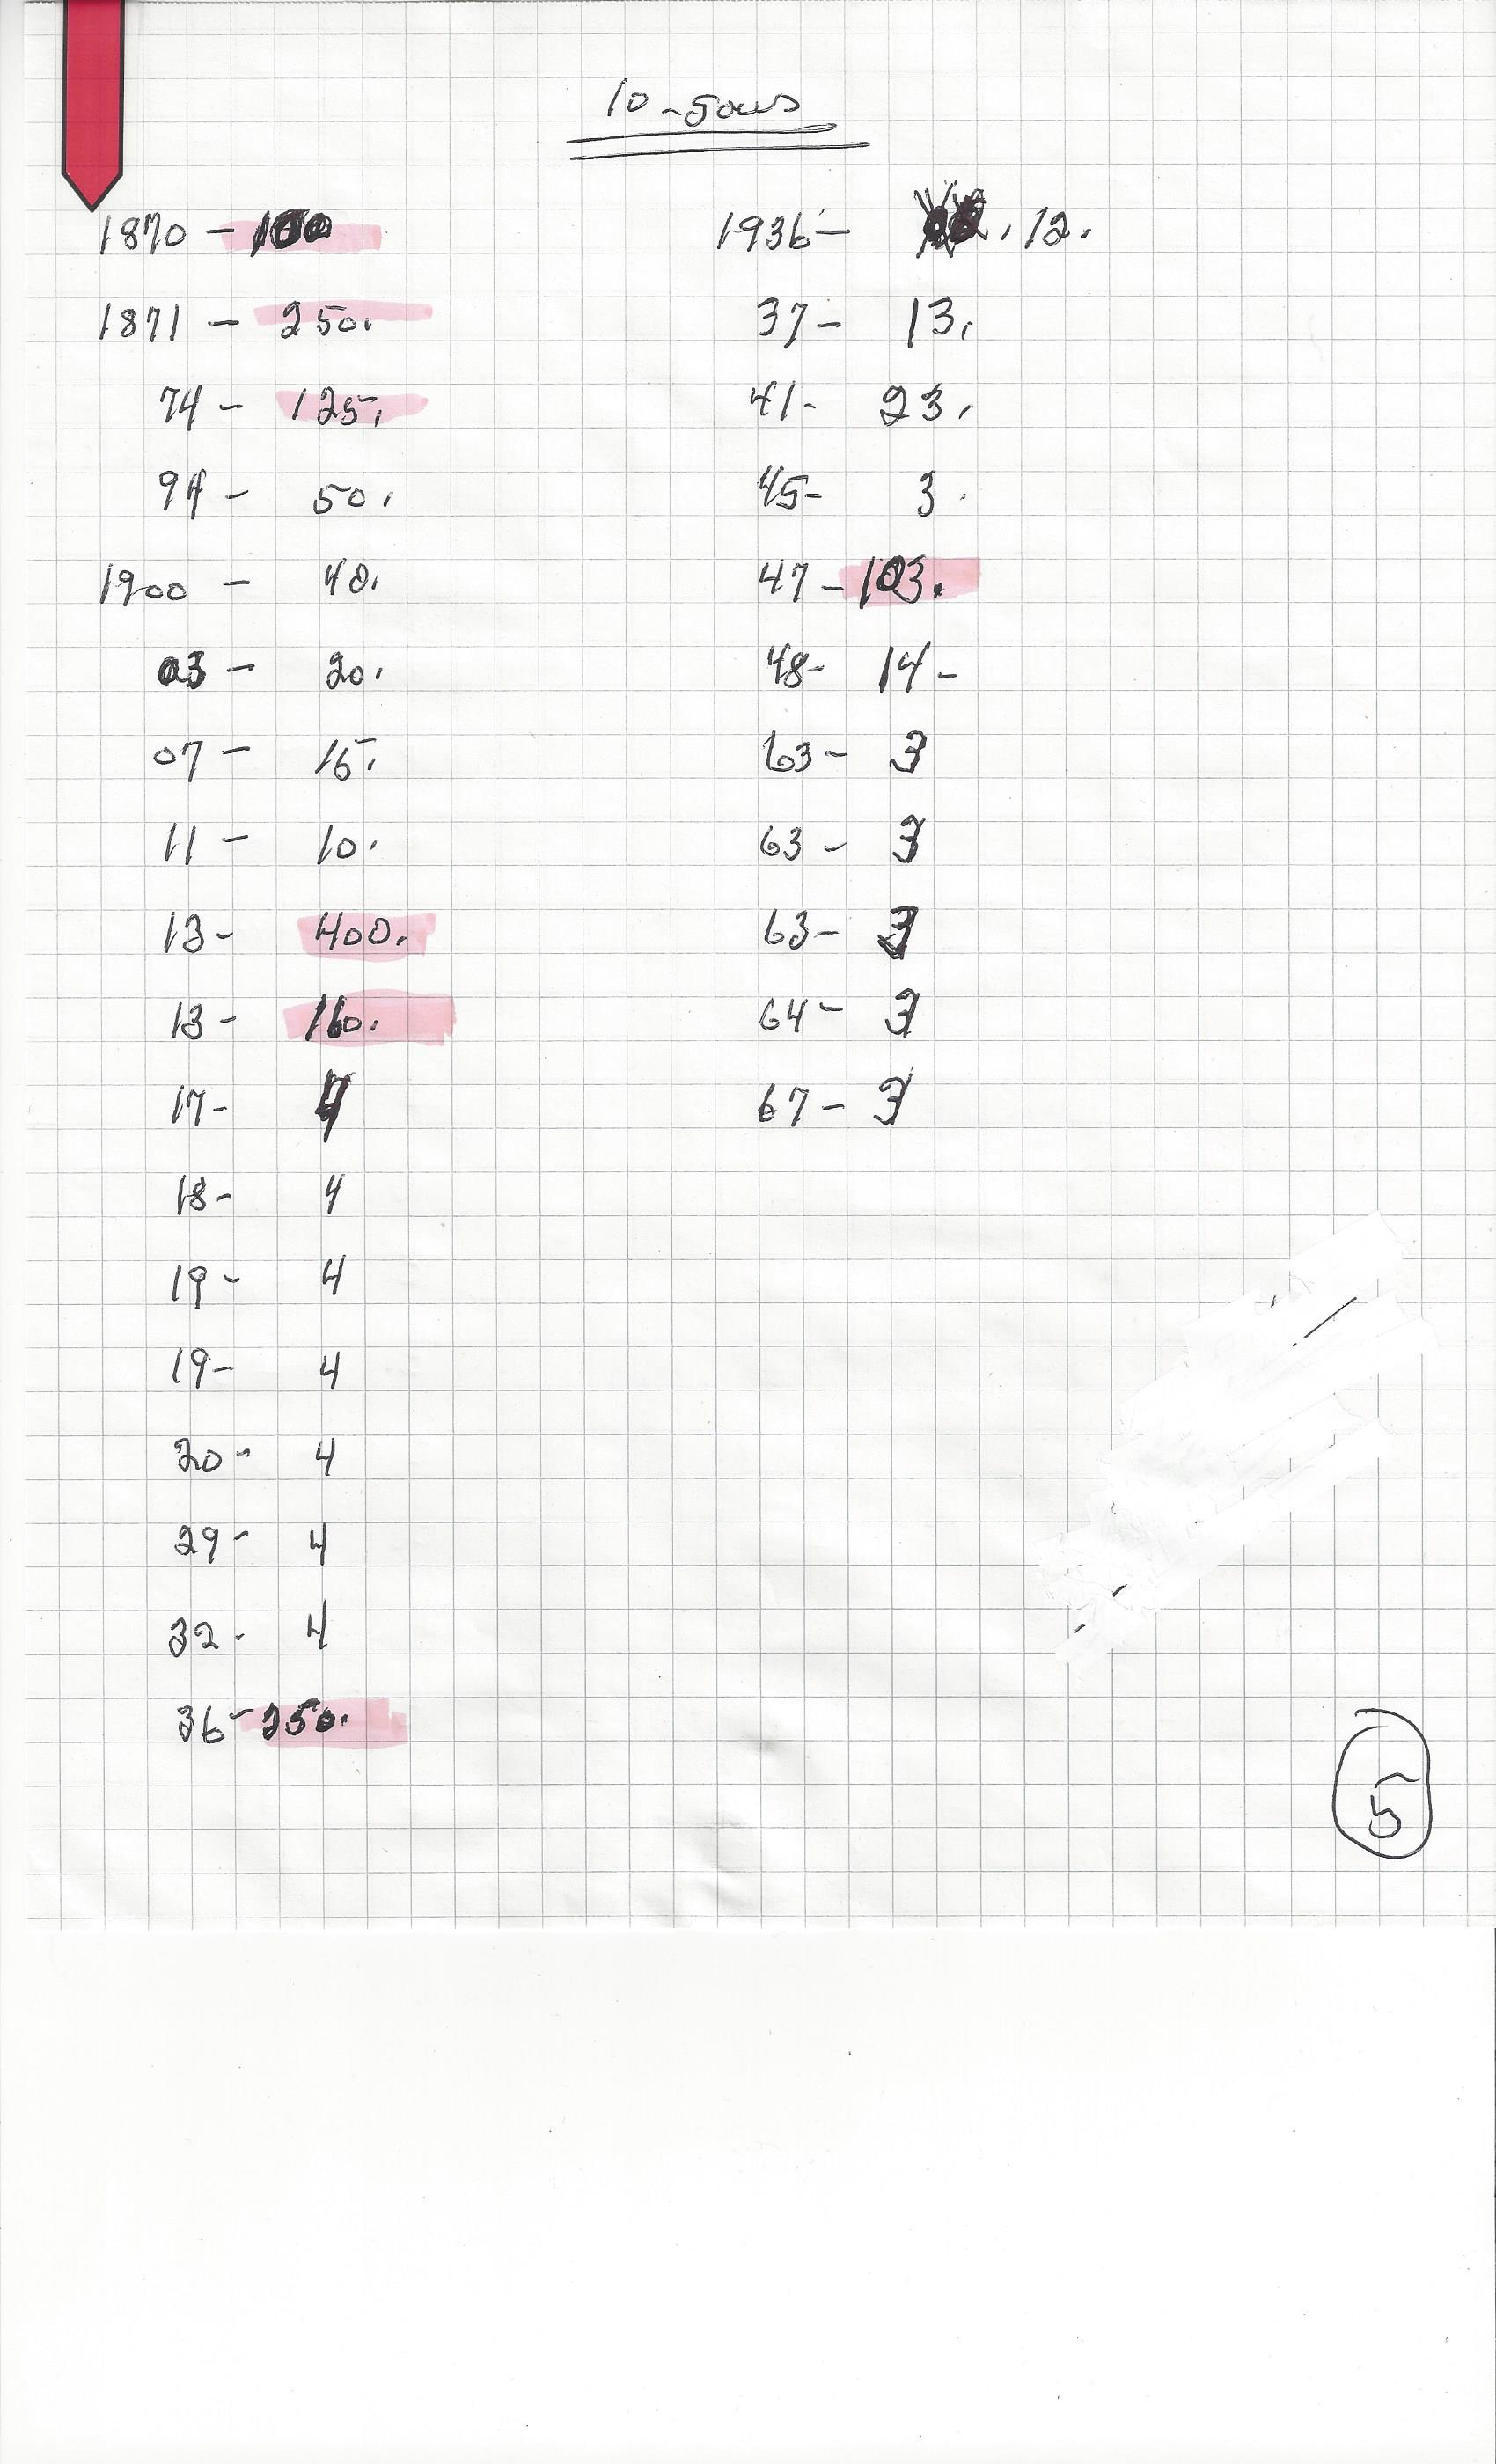 10-sous
1870 - 100
1871 - 250.
74 - 125.
94 - 50.
1900 - 40.
03 - 20.
07 - 15.
11 - 10.
13 - 400.
13 - 160.
17 - 4
18 - 4
19 - 4
19 - 4
20 - 4
29 - 4
32 - 4
36 - 250.
1936 - 12.
37 - 13.
41 - 23.
45 - 3.
47 - 103.
48 - 14 -
63 - 3
63 - 3
63 - 3
64 - 3
67 - 3
5